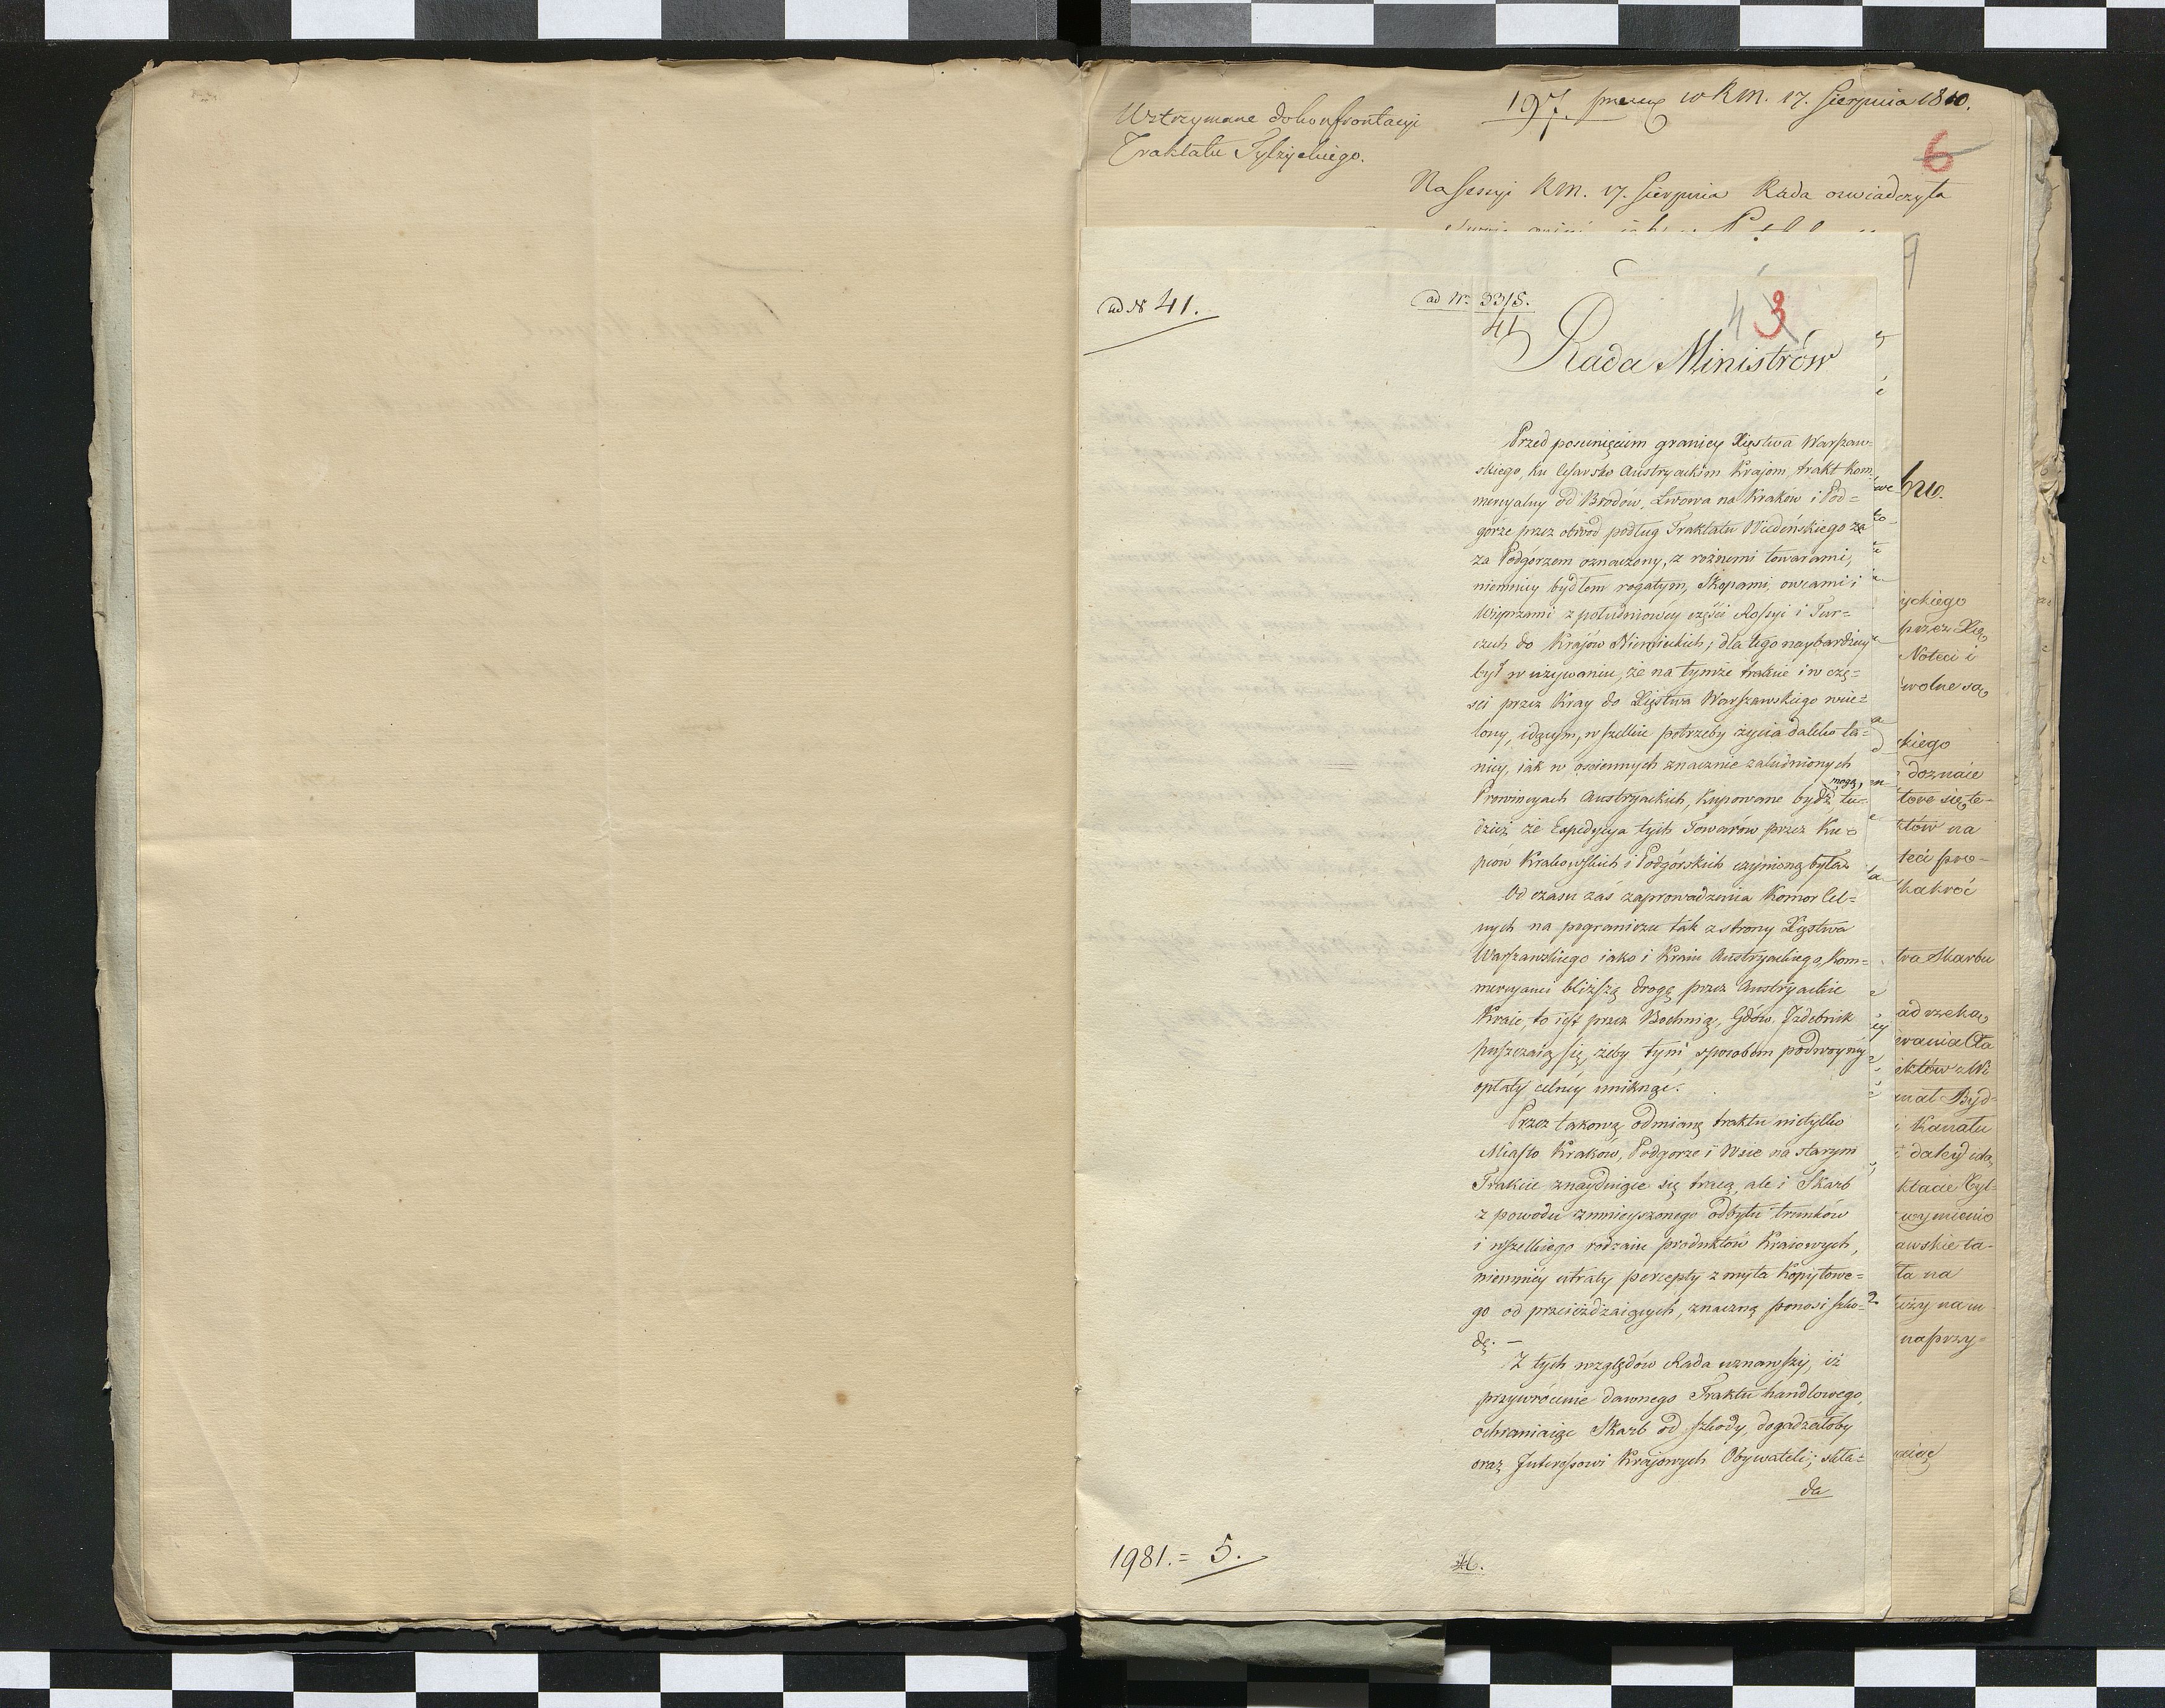 Wstrzymane do konfrontacyi
Traktatu Tylżyckiego.
197. w R.M. 17. Sierpnia 1810.
6
Na Sessyi R.M. 17. Sierpnia Rada oswiadczyła
ad N 41.
ad Nr 3318.
41
4 3
Rada Ministrów
Przed posunięciem granicy Xięstwa Warszaw=
skiego, ku Cesarsko Austryackim Kraiom, trakt Kom=
mercyalny od Brodów, Lwowa na Kraków i Pod=
górze przez obwód podług Traktatu Wiedeńskiego za
za Podgórzem oznaczony, z rożnemi towarami,
niemniey bydłem rogatym, Skopami, owcami i
Wieprzami z południowey części Rossyi i Tur=
czech do Kraiów Niemieckich; dla tego naybardziey
był w używaniu, że na tymże trakcie i w czę=
sci przez Kray do Xięstwa Warszawskiego wcie=
lony, idącym, wszelkie potrzeby życia daleko ta=
niey, iak w ościennych znacznie zaludnionych
Prowincyach Austryackich, kupowane bydź mogą, tu=
dzież że Expedycya tych Towarów przez Ku=
pców Krakowskich i Podgórskich czynioną była.
Od czasu zaś zaprowadzenia Komor Cel=
nych na pograniczu tak z strony Xięstwa
Warszawskiego iako i Kraiu Austryackiego, Kom=
mercyanci bliższą drogę przez Austryackie
Kraie, to iest przez Bochnią, Gdów, Izdebnik
puszczaią się, żeby tym sposobem podwoyney
opłaty celney uniknąć.
Przez takową odmianę traktu nietylko
Miasto Kraków, Podgorze i Wsie na starym
Trakcie znayduiące się tracą, ale i Skarb
z powodu zmnieyszonego odbytu trunków
i wszelkiego rodzaiu produktów Kraiowych,
niemniey utraty percepty z myta Kopytowe=
go od przeieżdzaiących, znaczną ponosi szko=
dę. —
Z tych względów Rada uznawszy, iż
przywrócenie dawnego Traktu handlowego,
ochraniaiąc Skarb od szkody, dogadzałoby
oraz Interessowi Krajowych Obywateli; skła=
da
1981. = 5.
bw.
yckiego
przez Xię
Noteci i
wolne są
kiego
doznaie
tore się te-
któw na
teci pro-
kakroć
tra Skarbu
ad rzeką
wania Cła
nał Byd=
i Kanału
daley idą
ktacie Tyl-
wymienio
awskie ta-
ta na
na przy=